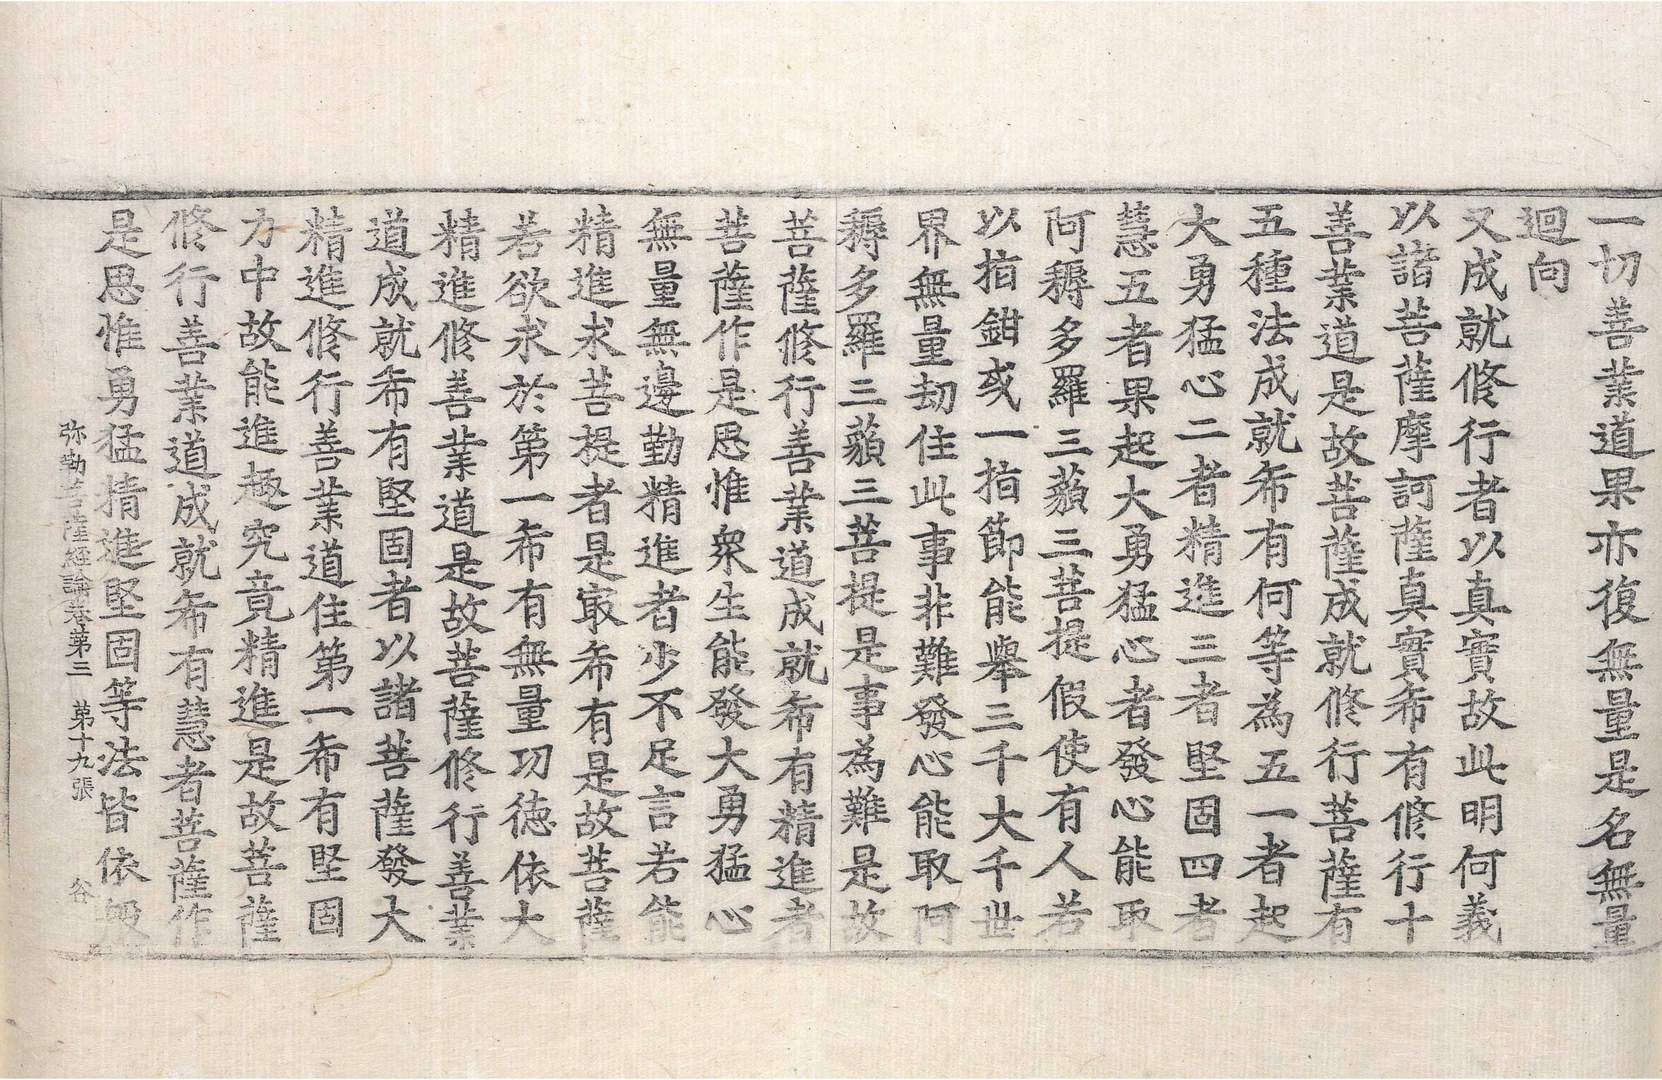 一切善業道果亦復無量是名無量
迴向
又成就修行者以真實故此明何義
以諸菩薩摩訶薩真實希有修行十
善業道是故菩薩成就修行菩薩有
五種法成就希有何等為五一者起
大勇猛心二者精進三者堅固四者
慧五者果起大勇猛心者發心能取
阿耨多羅三藐三菩提假使有人若
以指鉗或一指節能舉三千大千世
界無量劫住此事非難發心能取阿
耨多羅三藐三菩提是事為難是故
菩薩修行善業道成就希有精進者
菩薩作是思惟眾生能發大勇猛心
無量無邊勤精進者少不足言若能
精進求菩提者是㝡希有是故菩薩
若欲求於第一希有無量功德依大
精進修善業道是故菩薩修行善業
道成就希有堅固者以諸菩薩發大
精進修行善業道住第一希有堅固
力中故能進趣究竟精進是故菩薩
修行善業道成就希有慧者菩薩作
是思惟勇猛精進堅固等法皆依般
弥勒菩薩經論卷第三 第十九張 谷